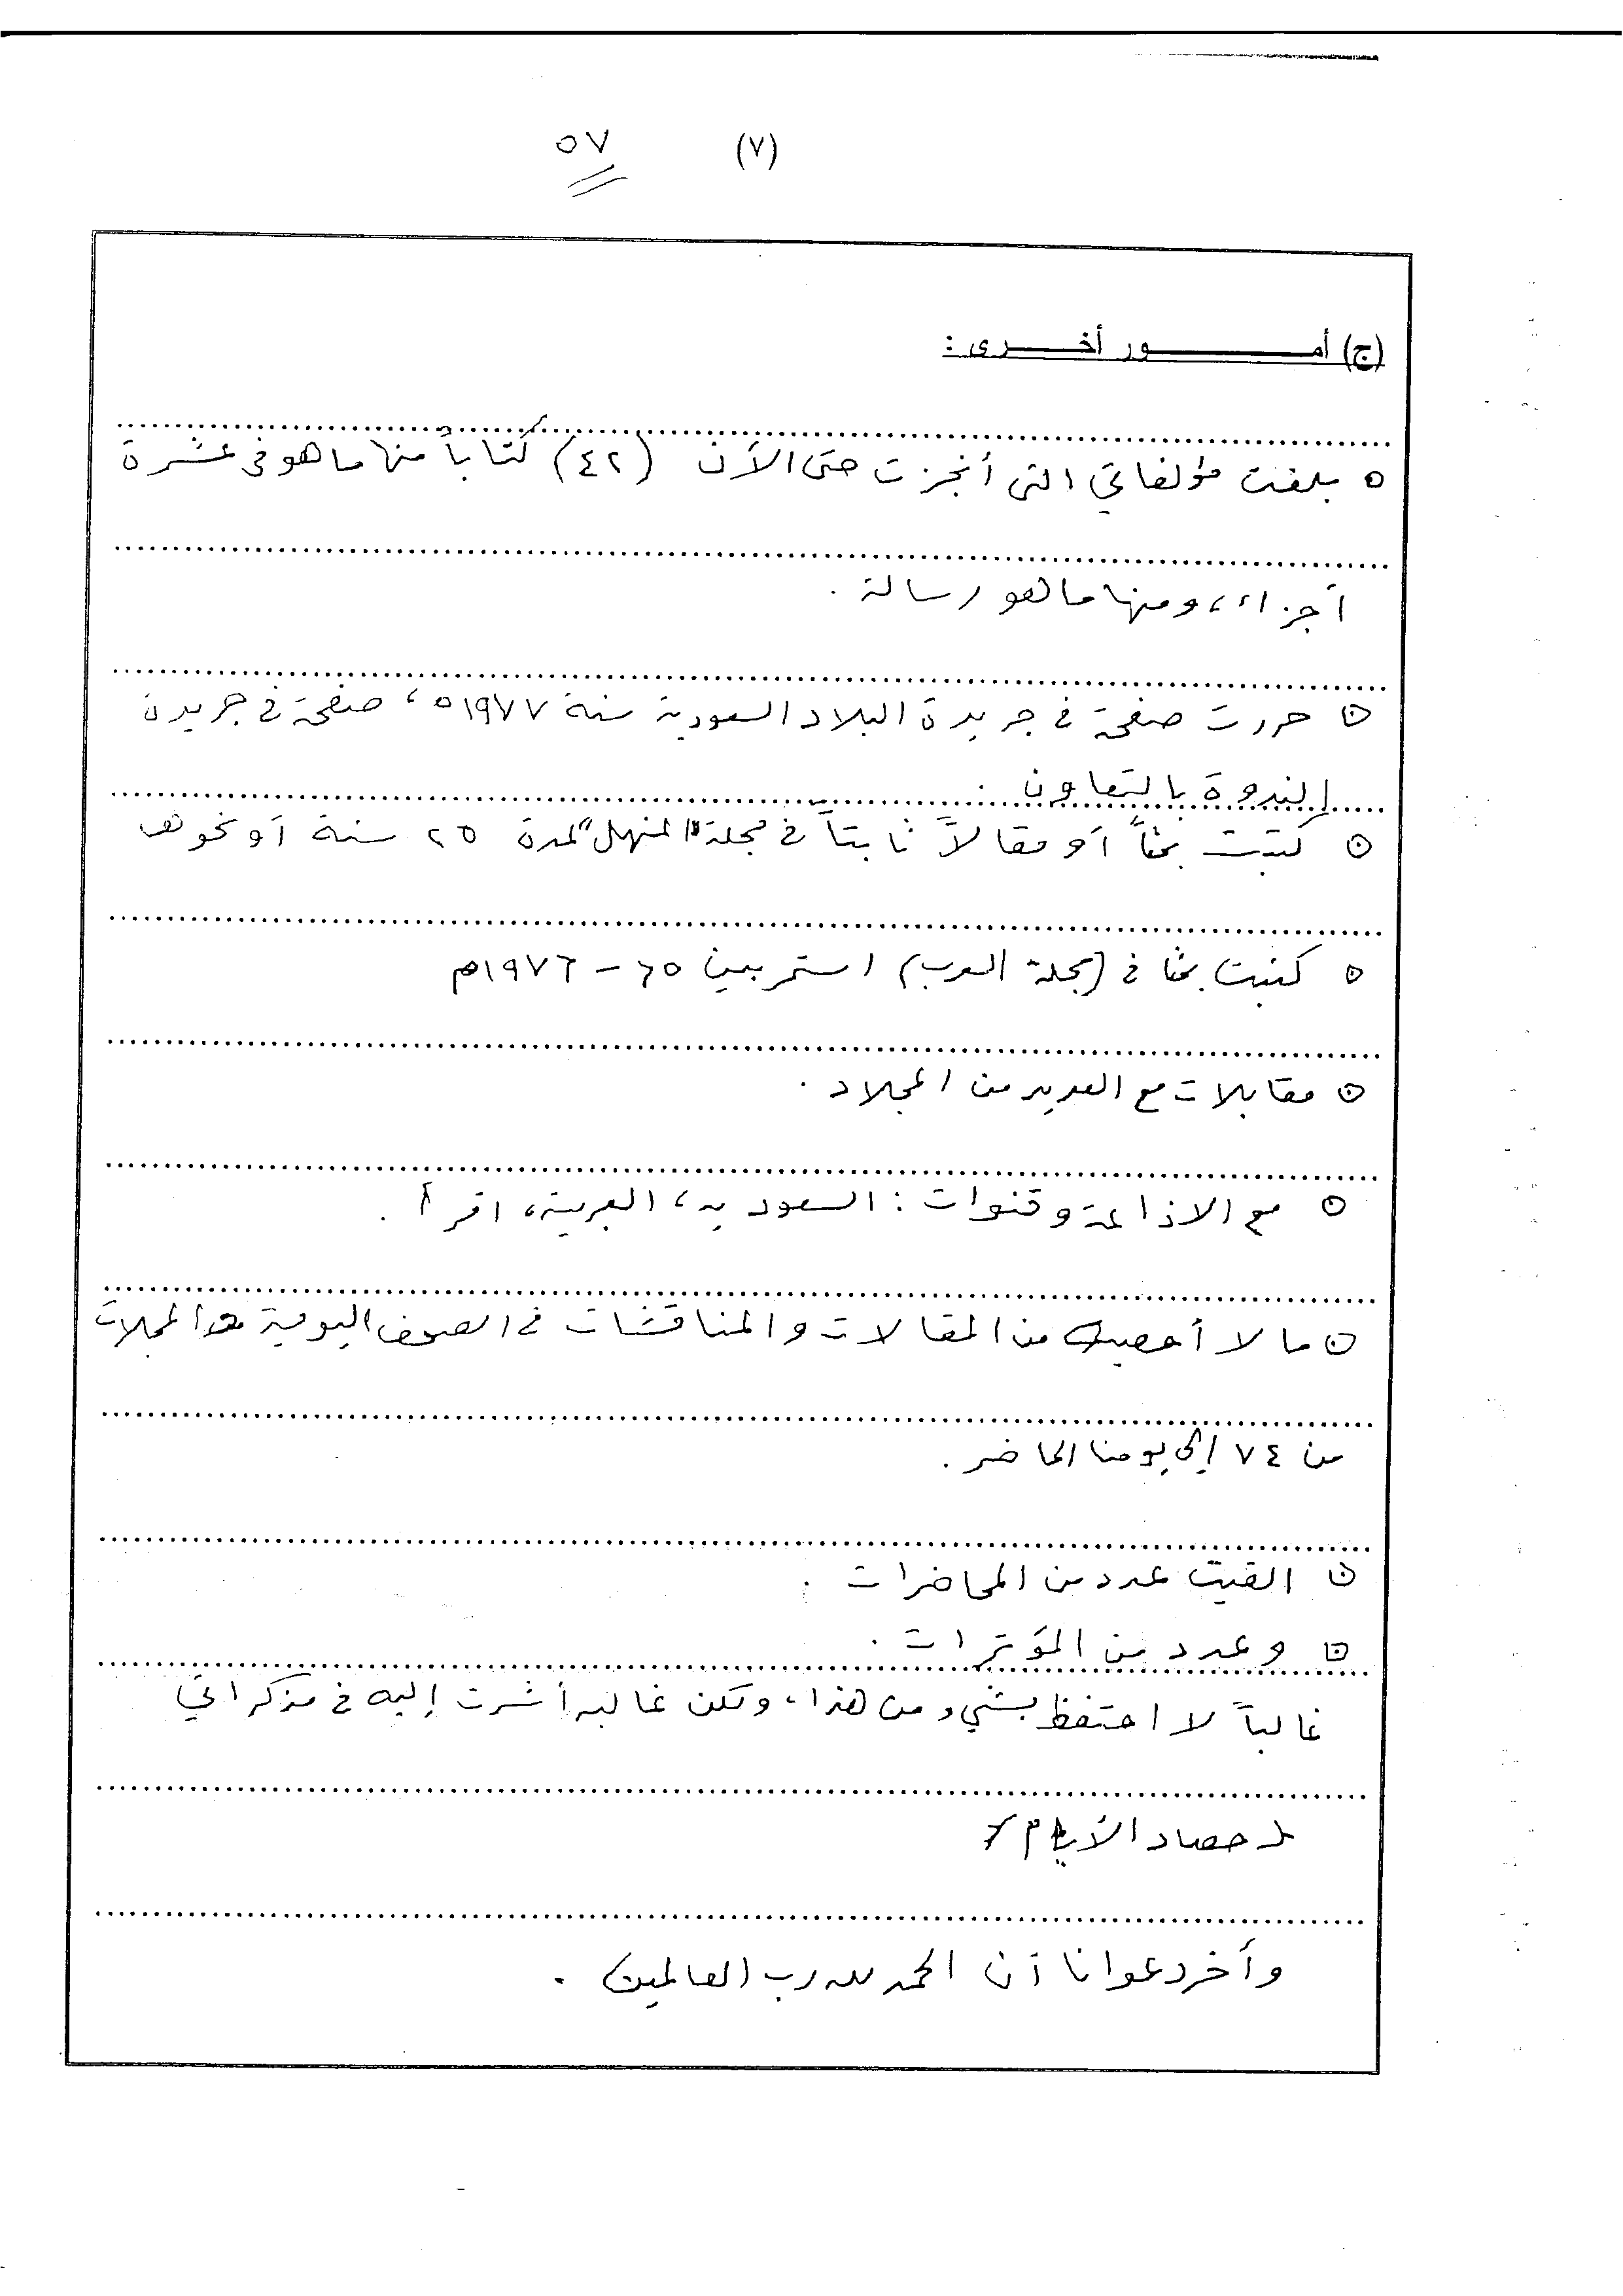 (٧) ٥٧
(ج) أمور أخرى :
ه بلغت مؤلفاتي التى أنجزت حتى الآن (٤٢) كتاباً منها ما هو فى عشرة
أجزاء، ومنها ما هو رسالة .
ه حررت صفحة في جريدة البلاد السعودية سنة ١٩٧٧ه، صفحة في جريدة
الندوة بالتعاون .
ه كتبت بحثاً أو مقالاً ثابتاً في مجلة "المنهل" لمدة ٢٥ سنة أو نحوها
ه كتبت بحثا في (مجلة العرب) استمر بين ٦٥ - ١٩٧٦م
ه مقابلات مع العديد من المجلاد .
ه مع الاذاعة وقنوات : السعودية، العربية، اقرأ .
ه ما لا أحصيه من المقالات والمناقشات في الصحف اليومية والمجلات
من ٧٤ إلى يومنا الحاضر .
ه القيت عدد من المحاضرات .
ه وعدد من المؤترات .
غالباً لا احتفظ بشيء من هذا، ولكن غالبه أشرت إليه في مذكراتي
حصاد الأيام
وأخر دعوانا أن الحمد لله رب العالمين .